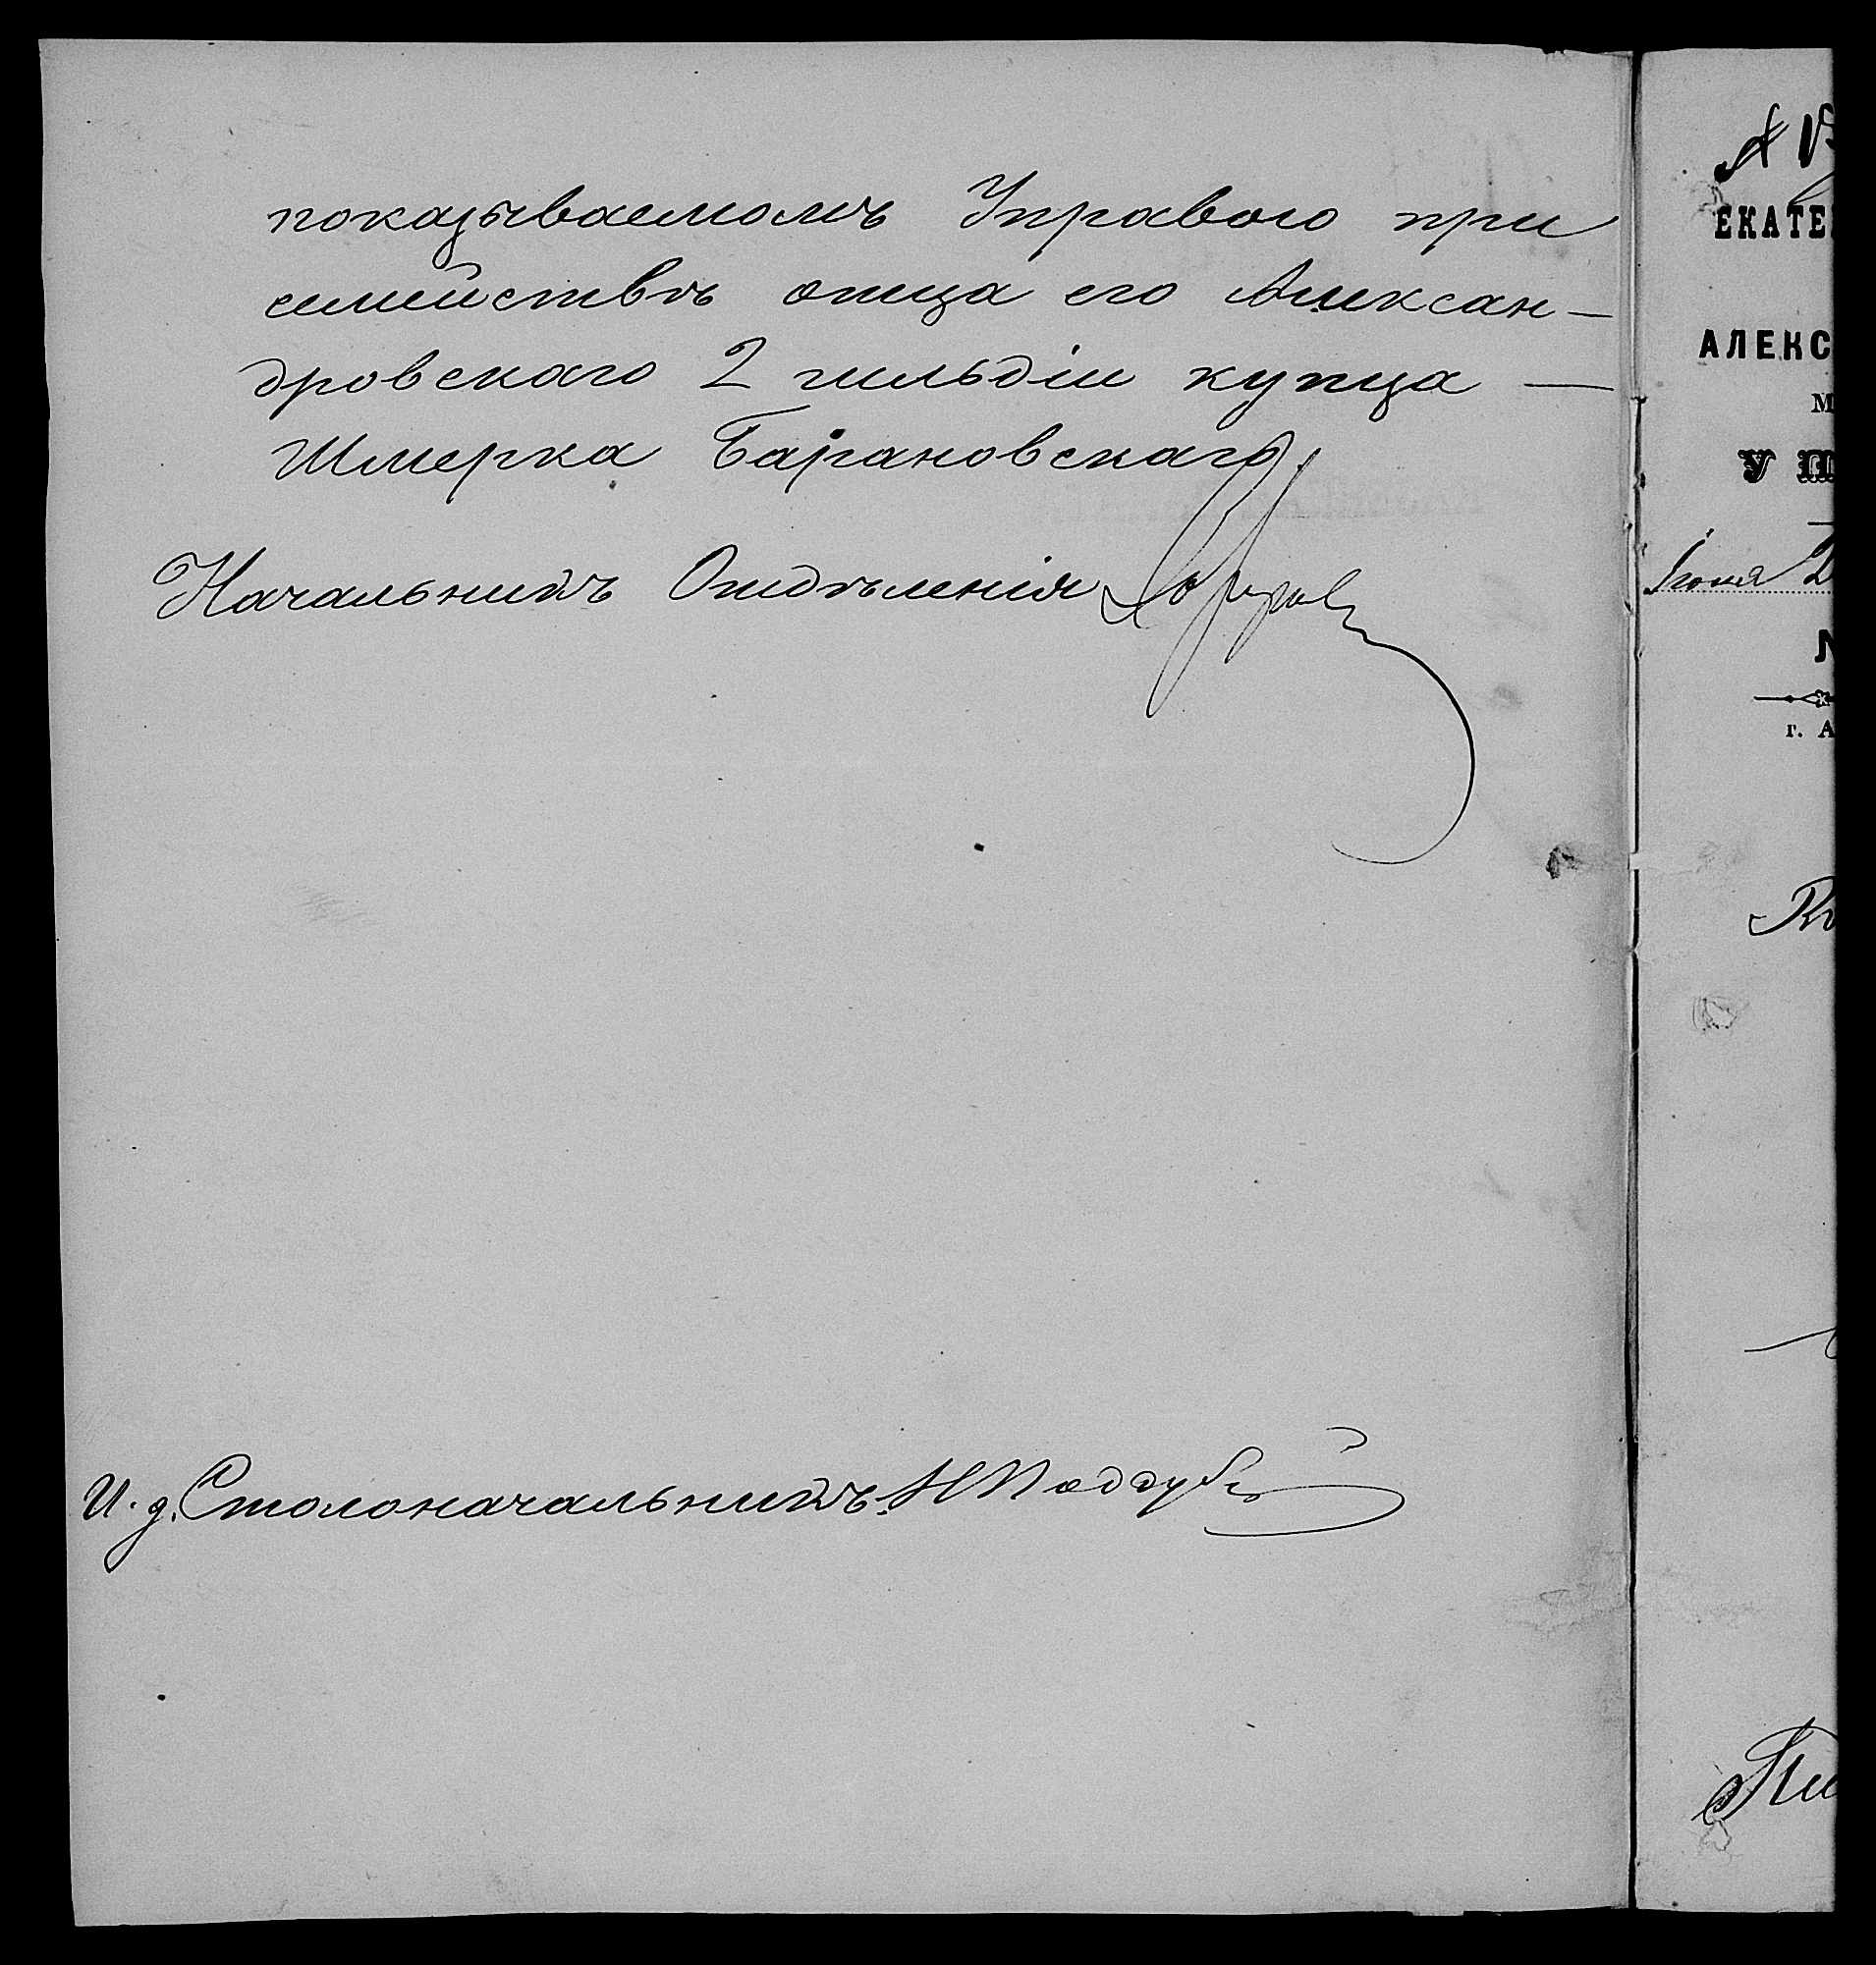 показываемомъ Управою при
семействѣ отца его Алексан-
дровскаго 2 гильдіи купца —
Шмерка Барановскаго.
Начальникъ Отдѣленія
И. д. Столоначальникъ
ЕКАТЕ
АЛЕКС
М
У П
Іюня 2
г. А